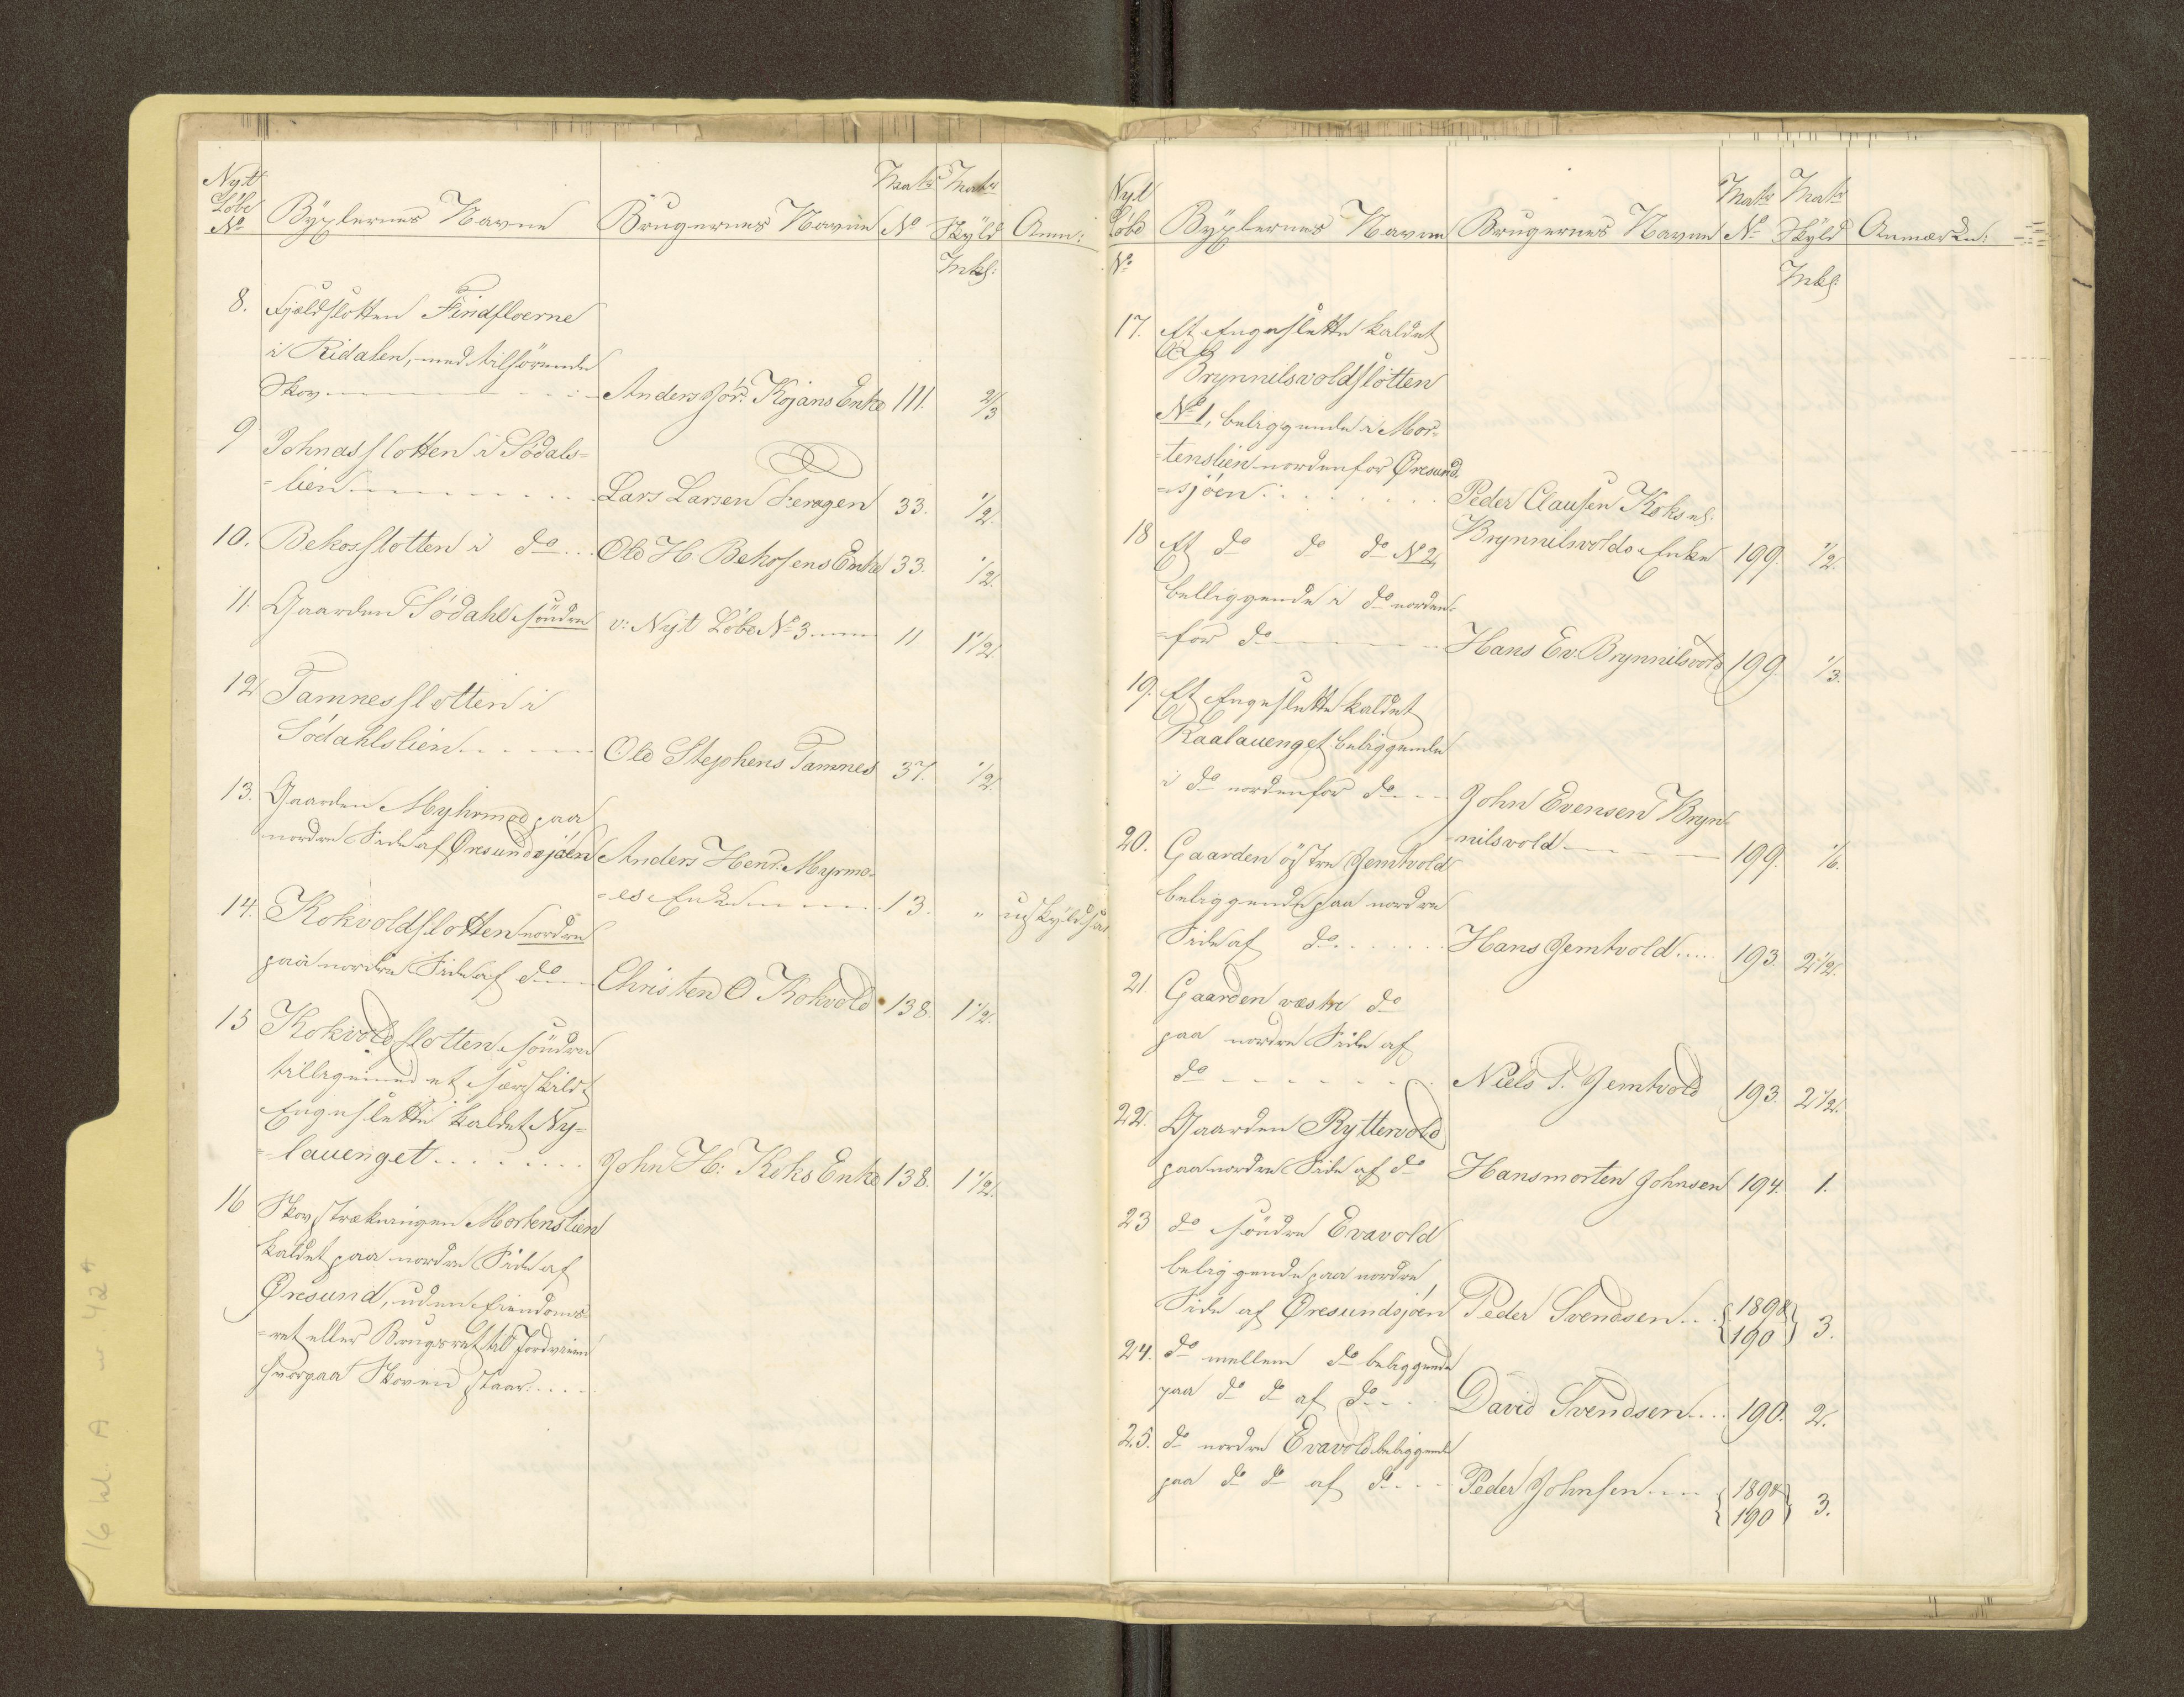 Nyt
Løbe
No
Bÿxlernes Navne
Brugernes Navne
Matr No
Matr Skyld
Anm:
Mkl:
8. Fjeldslotten Findfloerne
i Ridalen, med tilhörende
Skov Anders Jör: Kojans Enke 111. 2/3
9 Johnasslotten i Södals-
-lien Lars Larsen Feragen 33. 1/2.
10. Bekosslotten i do Ole H Bekosens Enke 33. 1/2.
11. Gaarden Södahl söndre v: Nyt Löbe No 3 11 1 1/2.
12 Tamnesslotten i
Södahlslien Ole Stephens Tamnes 37. 1/2.
13. Gaarden Myhrmoe paa
nordre Side af Øresundsjöen Anders Henr. Myrmo-
-es Enke 13. " uskyldsat
14. Kokvoldslotten nordre
paa nordre Side af do Christen O Kokvold 138. 1 1/2.
15 Kokvoldslotten söndre
tilligemed et særskildt
Engeslette kaldet Ny-
-lauenget John H: Koks Enke 138. 1 1/2.
16 Skovstrækningen Mortenslien
kaldet paa nordre Side af
Øresund, uden Eiendoms-
-ret eller Brugsret til Jordveien
hvorpaa Skoven staar
Nyt
Løbe
No
Byxlernes Navne
Brugernes Navne
Matr No
Matr Skyld
Anmærkn:
Mkl:
17. Et Engeslette kaldet
Brynnilsvoldslötten
No 1, beliggende i Mor-
-tenslien nordenfor Øresund
-sjöen Peder Clausen Koks el:
Brynnilsvolds Enke 199. 1/2.
18 Et do do do No 2,
belliggende i do norden-
-for do Hans Ev. Brynnilsvold 199. 1/3.
19. Et Engeslette kaldet
Kaalauenget beliggende
i do nordenfor do John Evensen Bryn-
-nilsvold 199. 1/6.
20. Gaarden östre Jemtvold
beliggende paa nordre
Side af do Hans Jemtvold 193. 2 1/2.
21. Gaarden væstre do
paa nordre Side af
do Niels P. Jemtvold 193. 2 1/2.
22. Gaarden Ryttervold
paa nordre Side af do Hansmorten Johnsen 194. 1.
23 do söndre Evavold
beliggende paa nordre
Side af Øresundsjöen Peder Svendsen { 189 & 190 } 3.
24. do mellem do beliggende
paa do do af do David Svendsen 190. 2.
25. do nordre Evavold beliggende
paa do do af do Peder Johnsen { 189 & 190 } 3.
16 kl. A